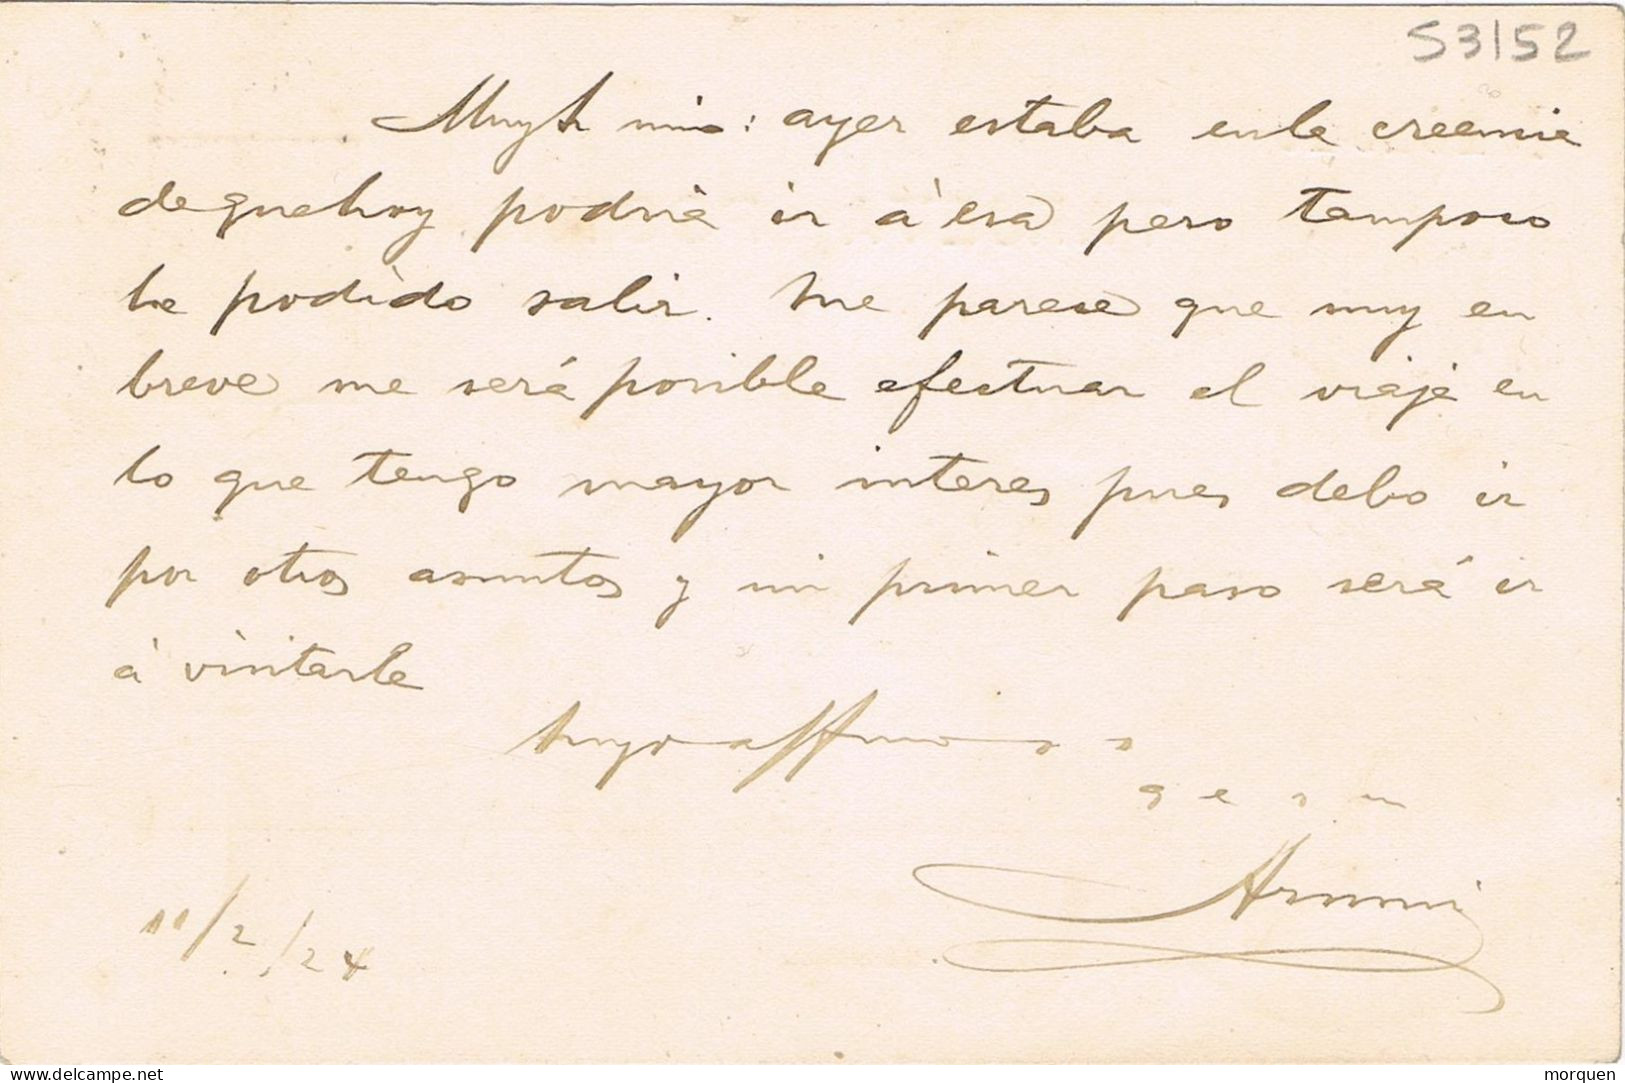 53152
Muy Sr mio: ayer estaba en la creencia
de que hoy podria ir á esa pero tampoco
he podido salir. Me parece que muy en
breve me será posible efectuar el viaje en
lo que tengo mayor interes pues debo ir
por otros asuntos y mi primer paso será ir
á visitarle
Suyo affmo s s
q e s m
11/2/24
morquen